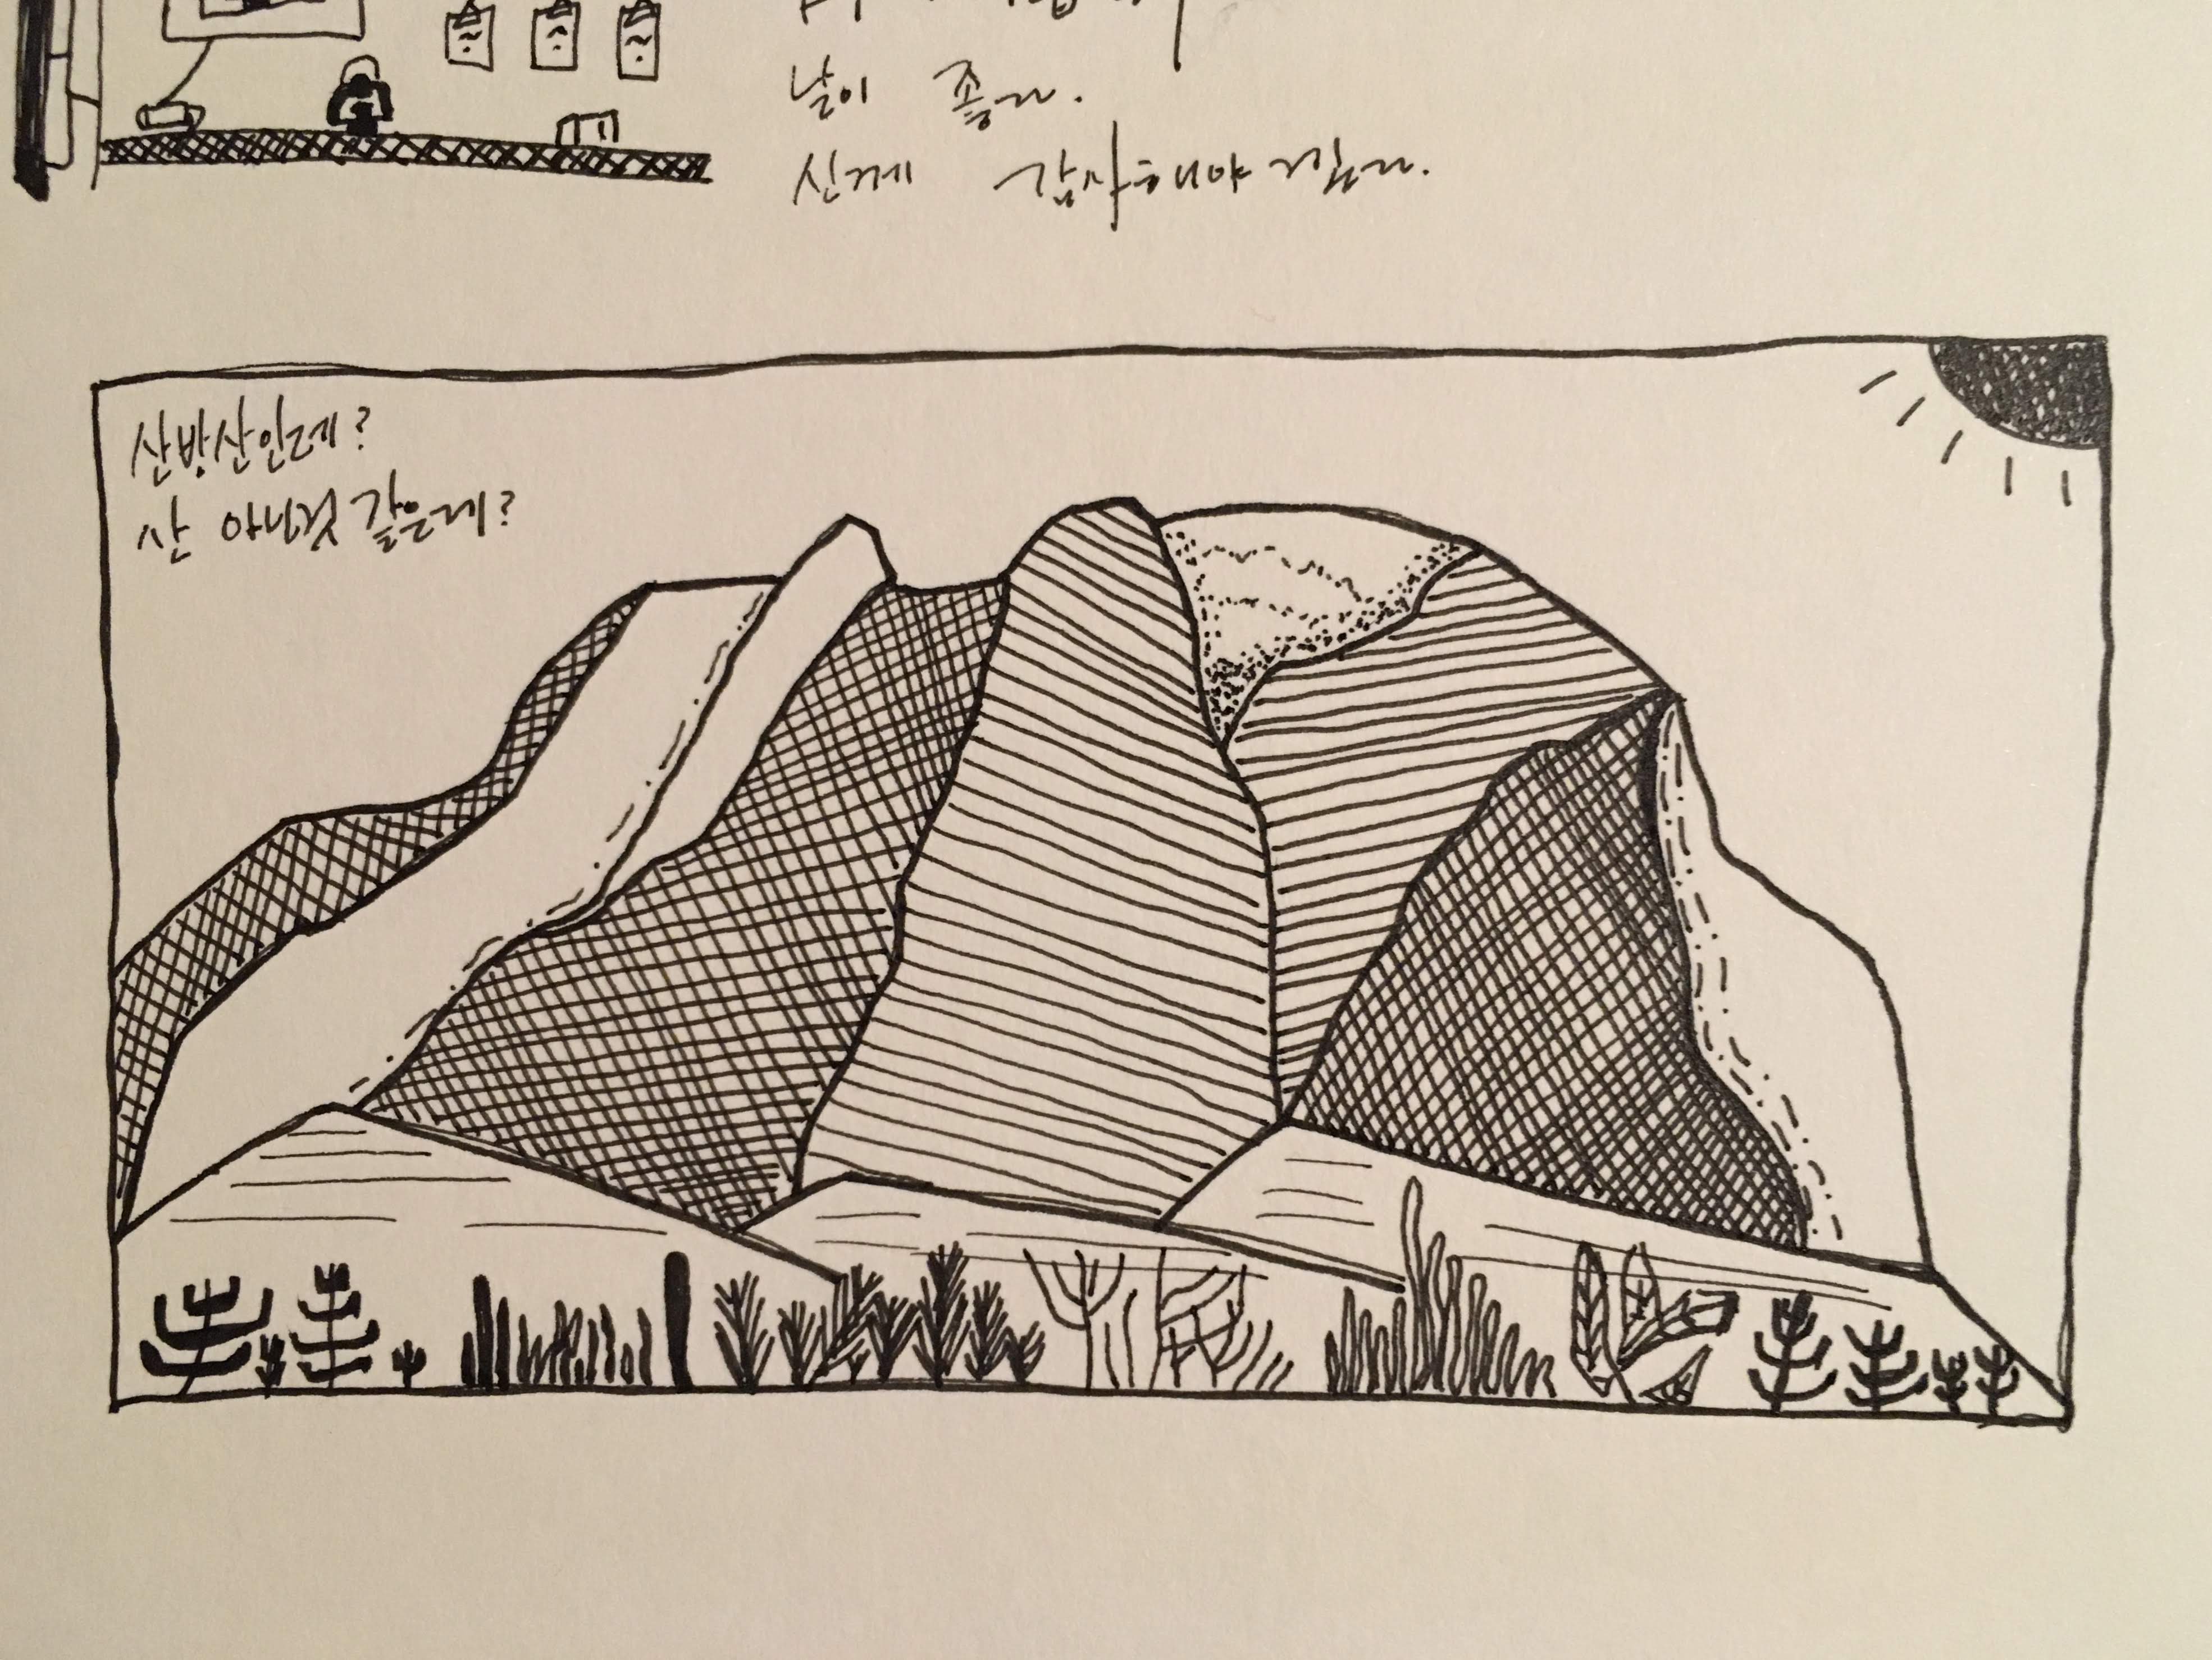 날이 좋다.
신께 감사해야겠다.
산방산인데?
산 아닌것 같은데?